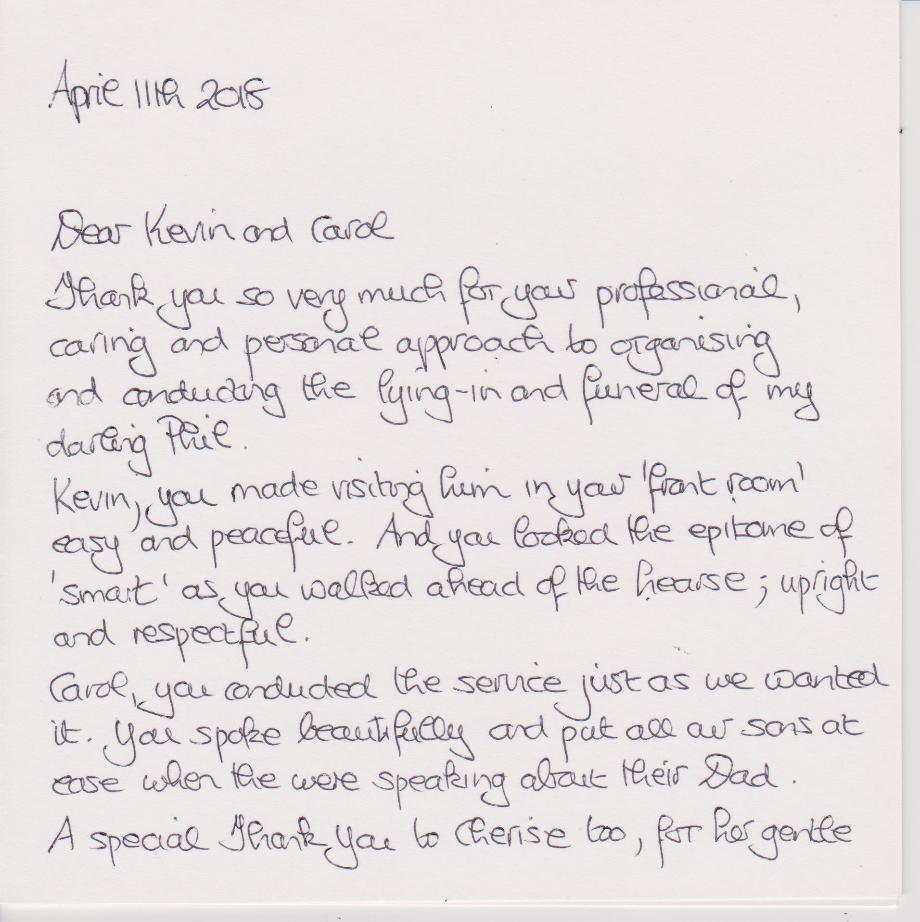 April 11th 2018
Dear Kevin and Carol
Thank you so very much for your professional,
caring and personal approach to organising
and conducting the lying-in and funeral of my
darling Phil.
Kevin, you made visiting him in your 'front room'
easy and peaceful. And you looked the epitome of
'smart' as you walked ahead of the hearse; upright
and respectful.
Carol, you conducted the service just as we wanted
it. You spoke beautifully and put all our sons at
ease when the were speaking about their Dad.
A special Thank You to Cherise too, for her gentle